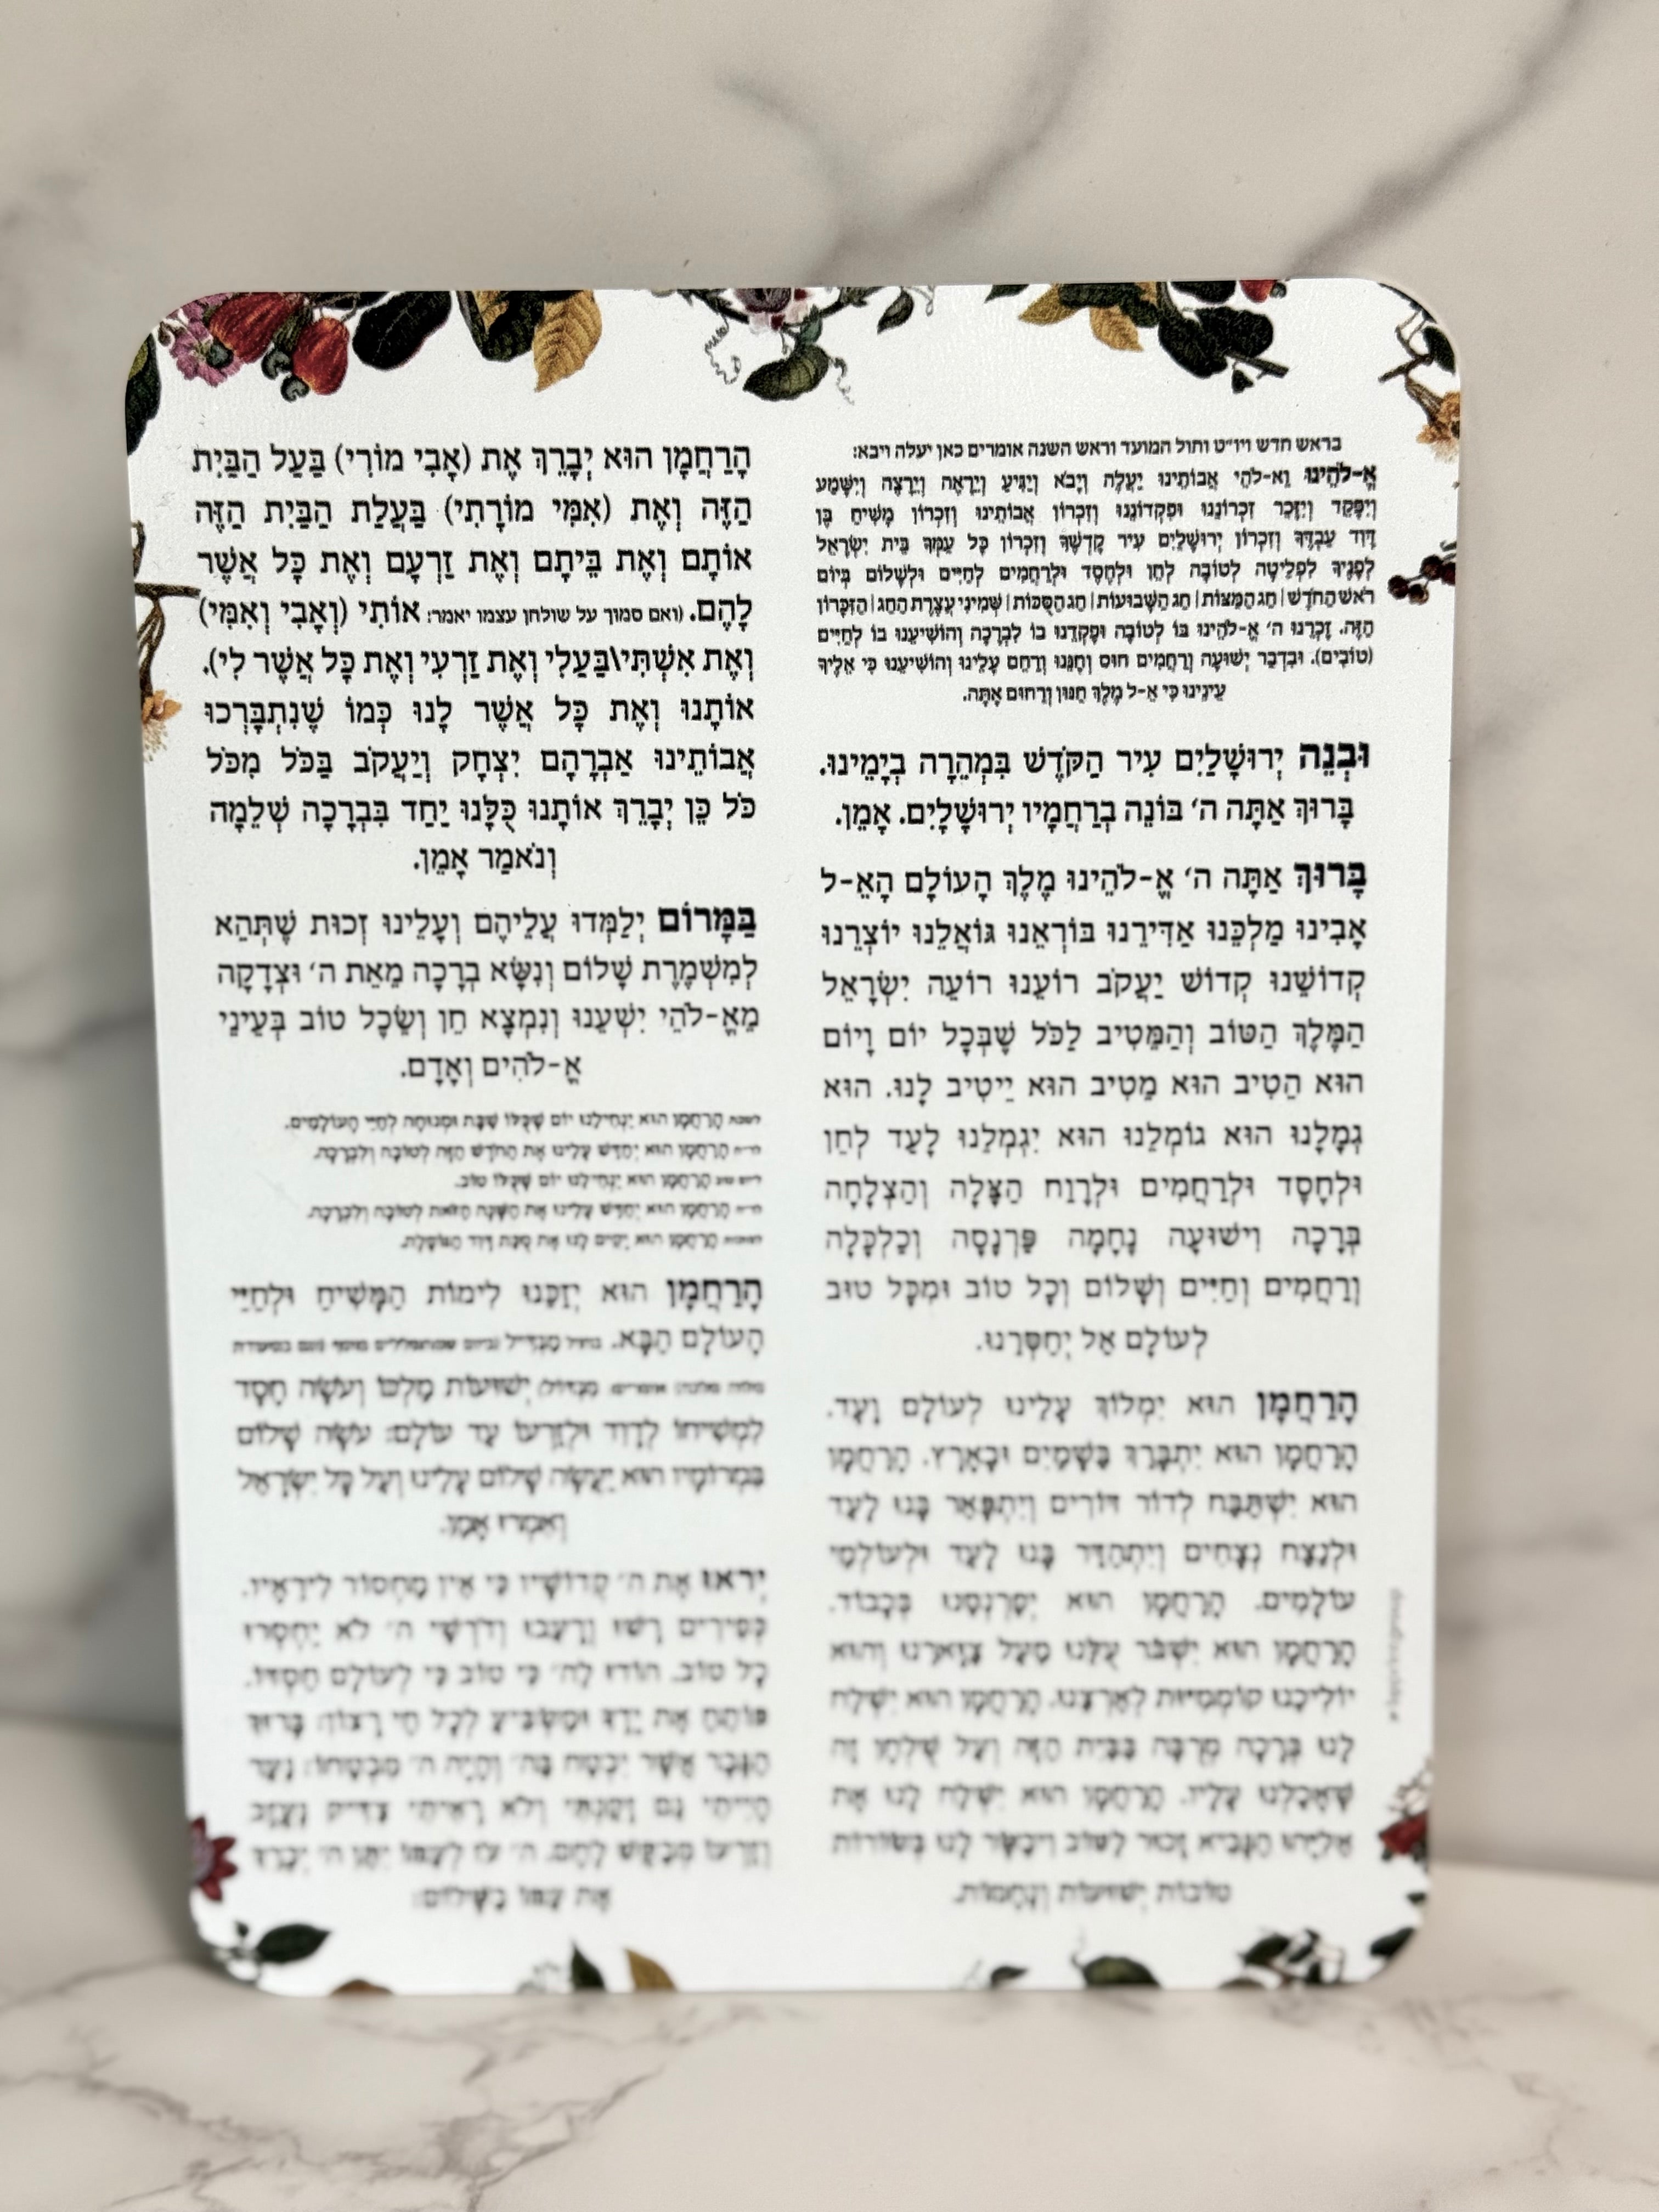 בראש חדש ויו״ט וחול המועד וראש השנה אומרים כאן יעלה ויבא:
אֱ-לֹהֵינוּ וֵא-לֹהֵי אֲבוֹתֵינוּ יַעֲלֶה וְיָבֹא וְיַגִּיעַ וְיֵרָאֶה וְיֵרָצֶה וְיִשָּׁמַע
וְיִפָּקֵד וְיִזָּכֵר זִכְרוֹנֵנוּ וּפִקְדוֹנֵנוּ וְזִכְרוֹן אֲבוֹתֵינוּ וְזִכְרוֹן מָשִׁיחַ בֶּן
דָּוִד עַבְדֶּךָ וְזִכְרוֹן יְרוּשָׁלַיִם עִיר קָדְשֶׁךָ וְזִכְרוֹן כָּל עַמְּךָ בֵּית יִשְׂרָאֵל
לְפָנֶיךָ לִפְלֵיטָה לְטוֹבָה לְחֵן וּלְחֶסֶד וּלְרַחֲמִים לְחַיִּים וּלְשָׁלוֹם בְּיוֹם
רֹאשׁ הַחֹדֶשׁ | חַג הַמַּצּוֹת | חַג הַשָּׁבוּעוֹת | חַג הַסֻּכּוֹת | שְׁמִינִי עֲצֶרֶת הַחַג | הַזִּכָּרוֹן
הַזֶּה. זָכְרֵנוּ ה׳ אֱ-לֹהֵינוּ בּוֹ לְטוֹבָה וּפָקְדֵנוּ בוֹ לִבְרָכָה וְהוֹשִׁיעֵנוּ בוֹ לְחַיִּים
(טוֹבִים). וּבִדְבַר יְשׁוּעָה וְרַחֲמִים חוּס וְחָנֵּנוּ וְרַחֵם עָלֵינוּ וְהוֹשִׁיעֵנוּ כִּי אֵלֶיךָ
עֵינֵינוּ כִּי אֵ-ל מֶלֶךְ חַנּוּן וְרַחוּם אָתָּה.
וּבְנֵה יְרוּשָׁלַיִם עִיר הַקֹּדֶשׁ בִּמְהֵרָה בְיָמֵינוּ.
בָּרוּךְ אַתָּה ה׳ בּוֹנֵה בְרַחֲמָיו יְרוּשָׁלָיִם. אָמֵן.
בָּרוּךְ אַתָּה ה׳ אֱ-לֹהֵינוּ מֶלֶךְ הָעוֹלָם הָאֵ-ל
אָבִינוּ מַלְכֵּנוּ אַדִּירֵנוּ בּוֹרְאֵנוּ גּוֹאֲלֵנוּ יוֹצְרֵנוּ
קְדוֹשֵׁנוּ קְדוֹשׁ יַעֲקֹב רוֹעֵנוּ רוֹעֵה יִשְׂרָאֵל
הַמֶּלֶךְ הַטּוֹב וְהַמֵּטִיב לַכֹּל שֶׁבְּכָל יוֹם וָיוֹם
הוּא הֵטִיב הוּא מֵטִיב הוּא יֵיטִיב לָנוּ. הוּא
גְמָלָנוּ הוּא גוֹמְלֵנוּ הוּא יִגְמְלֵנוּ לָעַד לְחֵן
וּלְחֶסֶד וּלְרַחֲמִים וּלְרֶוַח הַצָּלָה וְהַצְלָחָה
בְּרָכָה וִישׁוּעָה נֶחָמָה פַּרְנָסָה וְכַלְכָּלָה
וְרַחֲמִים וְחַיִּים וְשָׁלוֹם וְכָל טוֹב וּמִכָּל טוּב
לְעוֹלָם אַל יְחַסְּרֵנוּ.
הָרַחֲמָן הוּא יִמְלוֹךְ עָלֵינוּ לְעוֹלָם וָעֶד.
הָרַחֲמָן הוּא יִתְבָּרַךְ בַּשָּׁמַיִם וּבָאָרֶץ. הָרַחֲמָן
הוּא יִשְׁתַּבַּח לְדוֹר דּוֹרִים וְיִתְפָּאַר בָּנוּ לָעַד
וּלְנֵצַח נְצָחִים וְיִתְהַדַּר בָּנוּ לָעַד וּלְעוֹלְמֵי
עוֹלָמִים. הָרַחֲמָן הוּא יְפַרְנְסֵנוּ בְּכָבוֹד.
הָרַחֲמָן הוּא יִשְׁבֹּר עֻלֵּנוּ מֵעַל צַוָּארֵנוּ וְהוּא
יוֹלִיכֵנוּ קוֹמְמִיּוּת לְאַרְצֵנוּ. הָרַחֲמָן הוּא יִשְׁלַח
לָנוּ בְּרָכָה מְרֻבָּה בַּבַּיִת הַזֶּה וְעַל שֻׁלְחָן זֶה
שֶׁאָכַלְנוּ עָלָיו. הָרַחֲמָן הוּא יִשְׁלַח לָנוּ אֶת
אֵלִיָּהוּ הַנָּבִיא זָכוּר לַטּוֹב וִיבַשֵּׂר לָנוּ בְּשׂוֹרוֹת
טוֹבוֹת יְשׁוּעוֹת וְנֶחָמוֹת.
הָרַחֲמָן הוּא יְבָרֵךְ אֶת (אָבִי מוֹרִי) בַּעַל הַבַּיִת
הַזֶּה וְאֶת (אִמִּי מוֹרָתִי) בַּעֲלַת הַבַּיִת הַזֶּה
אוֹתָם וְאֶת בֵּיתָם וְאֶת זַרְעָם וְאֶת כָּל אֲשֶׁר
לָהֶם. (ואם סמוך על שולחן עצמו יאמר: אוֹתִי (וְאָבִי וְאִמִּי)
וְאֶת אִשְׁתִּי\בַּעֲלִי וְאֶת זַרְעִי וְאֶת כָּל אֲשֶׁר לִי).
אוֹתָנוּ וְאֶת כָּל אֲשֶׁר לָנוּ כְּמוֹ שֶׁנִּתְבָּרְכוּ
אֲבוֹתֵינוּ אַבְרָהָם יִצְחָק וְיַעֲקֹב בַּכֹּל מִכֹּל
כֹּל כֵּן יְבָרֵךְ אוֹתָנוּ כֻּלָּנוּ יַחַד בִּבְרָכָה שְׁלֵמָה
וְנֹאמַר אָמֵן.
בַּמָּרוֹם יְלַמְּדוּ עֲלֵיהֶם וְעָלֵינוּ זְכוּת שֶׁתְּהֵא
לְמִשְׁמֶרֶת שָׁלוֹם וְנִשָּׂא בְרָכָה מֵאֵת ה׳ וּצְדָקָה
מֵאֱ-לֹהֵי יִשְׁעֵנוּ וְנִמְצָא חֵן וְשֵׂכֶל טוֹב בְּעֵינֵי
אֱ-לֹהִים וְאָדָם.
לשבת הָרַחֲמָן הוּא יַנְחִילֵנוּ יוֹם שֶׁכֻּלּוֹ שַׁבָּת וּמְנוּחָה לְחַיֵּי הָעוֹלָמִים.
הָרַחֲמָן הוּא יְחַדֵּשׁ עָלֵינוּ אֶת הַחֹדֶשׁ הַזֶּה לְטוֹבָה וְלִבְרָכָה.
ליום טוב הָרַחֲמָן הוּא יַנְחִילֵנוּ יוֹם שֶׁכֻּלּוֹ טוֹב.
הָרַחֲמָן הוּא יְחַדֵּשׁ עָלֵינוּ אֶת הַשָּׁנָה הַזֹּאת לְטוֹבָה וְלִבְרָכָה.
הָרַחֲמָן הוּא יָקִים לָנוּ אֶת סֻכַּת דָּוִד הַנּוֹפֶלֶת.
הָרַחֲמָן הוּא יְזַכֵּנוּ לִימוֹת הַמָּשִׁיחַ וּלְחַיֵּי
הָעוֹלָם הַבָּא. בחול מַגְדִּיל
מִגְדּוֹל) יְשׁוּעוֹת מַלְכּוֹ וְעֹשֶׂה חֶסֶד
לִמְשִׁיחוֹ לְדָוִד וּלְזַרְעוֹ עַד עוֹלָם: עֹשֶׂה שָׁלוֹם
בִּמְרוֹמָיו הוּא יַעֲשֶׂה שָׁלוֹם עָלֵינוּ וְעַל כָּל יִשְׂרָאֵל
וְאִמְרוּ אָמֵן.
יְראוּ אֶת ה׳ קְדוֹשָׁיו כִּי אֵין מַחְסוֹר לִירֵאָיו.
כְּפִירִים רָשׁוּ וְרָעֵבוּ וְדֹרְשֵׁי ה׳ לֹא יַחְסְרוּ
כָל טוֹב. הוֹדוּ לַה׳ כִּי טוֹב כִּי לְעוֹלָם חַסְדּוֹ.
פּוֹתֵחַ אֶת יָדֶךָ וּמַשְׂבִּיעַ לְכָל חַי רָצוֹן: בָּרוּךְ
הַגֶּבֶר אֲשֶׁר יִבְטַח בַּה׳ וְהָיָה ה׳ מִבְטַחוֹ: נַעַר
הָיִיתִי גַּם זָקַנְתִּי וְלֹא רָאִיתִי צַדִּיק נֶעֱזָב
וְזַרְעוֹ מְבַקֶּשׁ לָחֶם. ה׳ עֹז לְעַמּוֹ יִתֵּן ה׳ יְבָרֵךְ
אֶת עַמּוֹ בַשָּׁלוֹם: